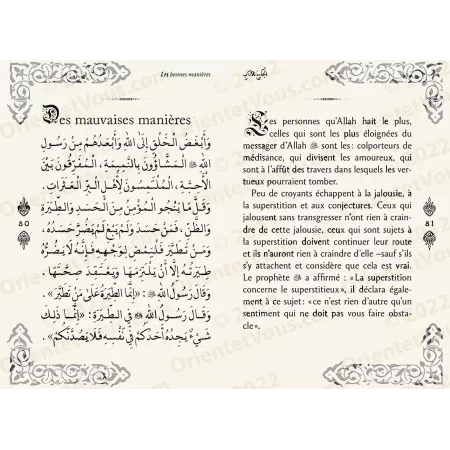 Les bonnes manières
Des mauvaises manières
وَأَبْغَضُ الْخَلْقِ إِلَى اللهِ وَأَبْعَدُهُمْ مِنْ رَسُولِ
اللهِ ﷺ الْمَشَّاؤُونَ بِالنَّمِيمَةِ، الْمُفَرِّقُونَ بَيْنَ
الْأَحِبَّةِ، الْمُلْتَمِسُونَ لِأَهْلِ الْبِرِّ الْعَثَرَاتِ.
وَقَلَّ مَا يَنْجُو الْمُؤْمِنُ مِنَ الْحَسَدِ وَالطِّيَرَةِ
وَمَنْ تَطَيَّرَ فَلْيَمْضِ لِوَجْهِهِ فَإِنَّهُ لَا يَضُرُّهُ
طِيَرَتُهُ إِلَّا أَنْ يَلْتَزِمَهَا وَيَعْتَقِدَ صِحَّتَهَا
وَقَالَ رَسُولُ اللهِ ﷺ: «إِنَّمَا الطِّيَرَةُ عَلَى مَنْ تَطَيَّرَ».
وَقَالَ رَسُولُ اللهِ ﷺ فِي الطِّيَرَةِ: «إِنَّمَا ذَلِكَ
شَيْءٌ يَجِدُهُ أَحَدُكُمْ فِي نَفْسِهِ فَلَا يَصُدَّنَّكُمْ».
80
Les personnes qu'Allah hait le plus,
celles qui sont les plus éloignées du
messager d'Allah ﷺ sont les : colporteurs de
médisance, qui divisent les amoureux, qui
sont à l'affût des travers dans lesquels les ver-
tueux pourraient tomber.
Peu de croyants échappent à la jalousie, à
la superstition et aux conjectures. Ceux qui
jalousent sans transgresser n'ont rien à crain-
dre de cette jalousie, ceux qui sont sujets à
la superstition doivent continuer leur route
et ils n'auront rien à craindre d'elle –sauf s'ils
s'y attachent et considère que cela est vrai.
Le prophète ﷺ a affirmé : « La superstition
concerne le superstitieux », il déclara égale-
ment à ce sujet : «ce n'est rien d'autre qu'un
sentiment qui ne doit pas vous faire obsta-
cle».
81
OrientetVous.com © 2022